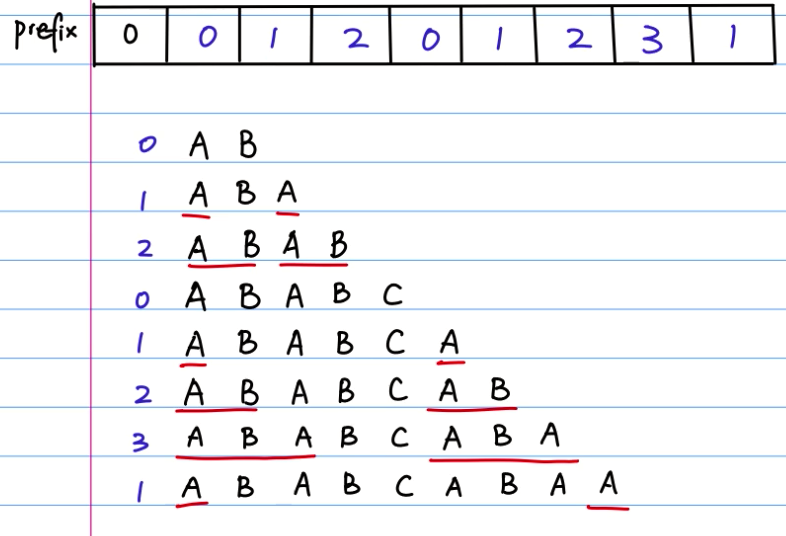 prefix 0 0 1 2 0 1 2 3 1
0 A B
1 A B A
2 A B A B
0 A B A B C
1 A B A B C A
2 A B A B C A B
3 A B A B C A B A
1 A B A B C A B A A